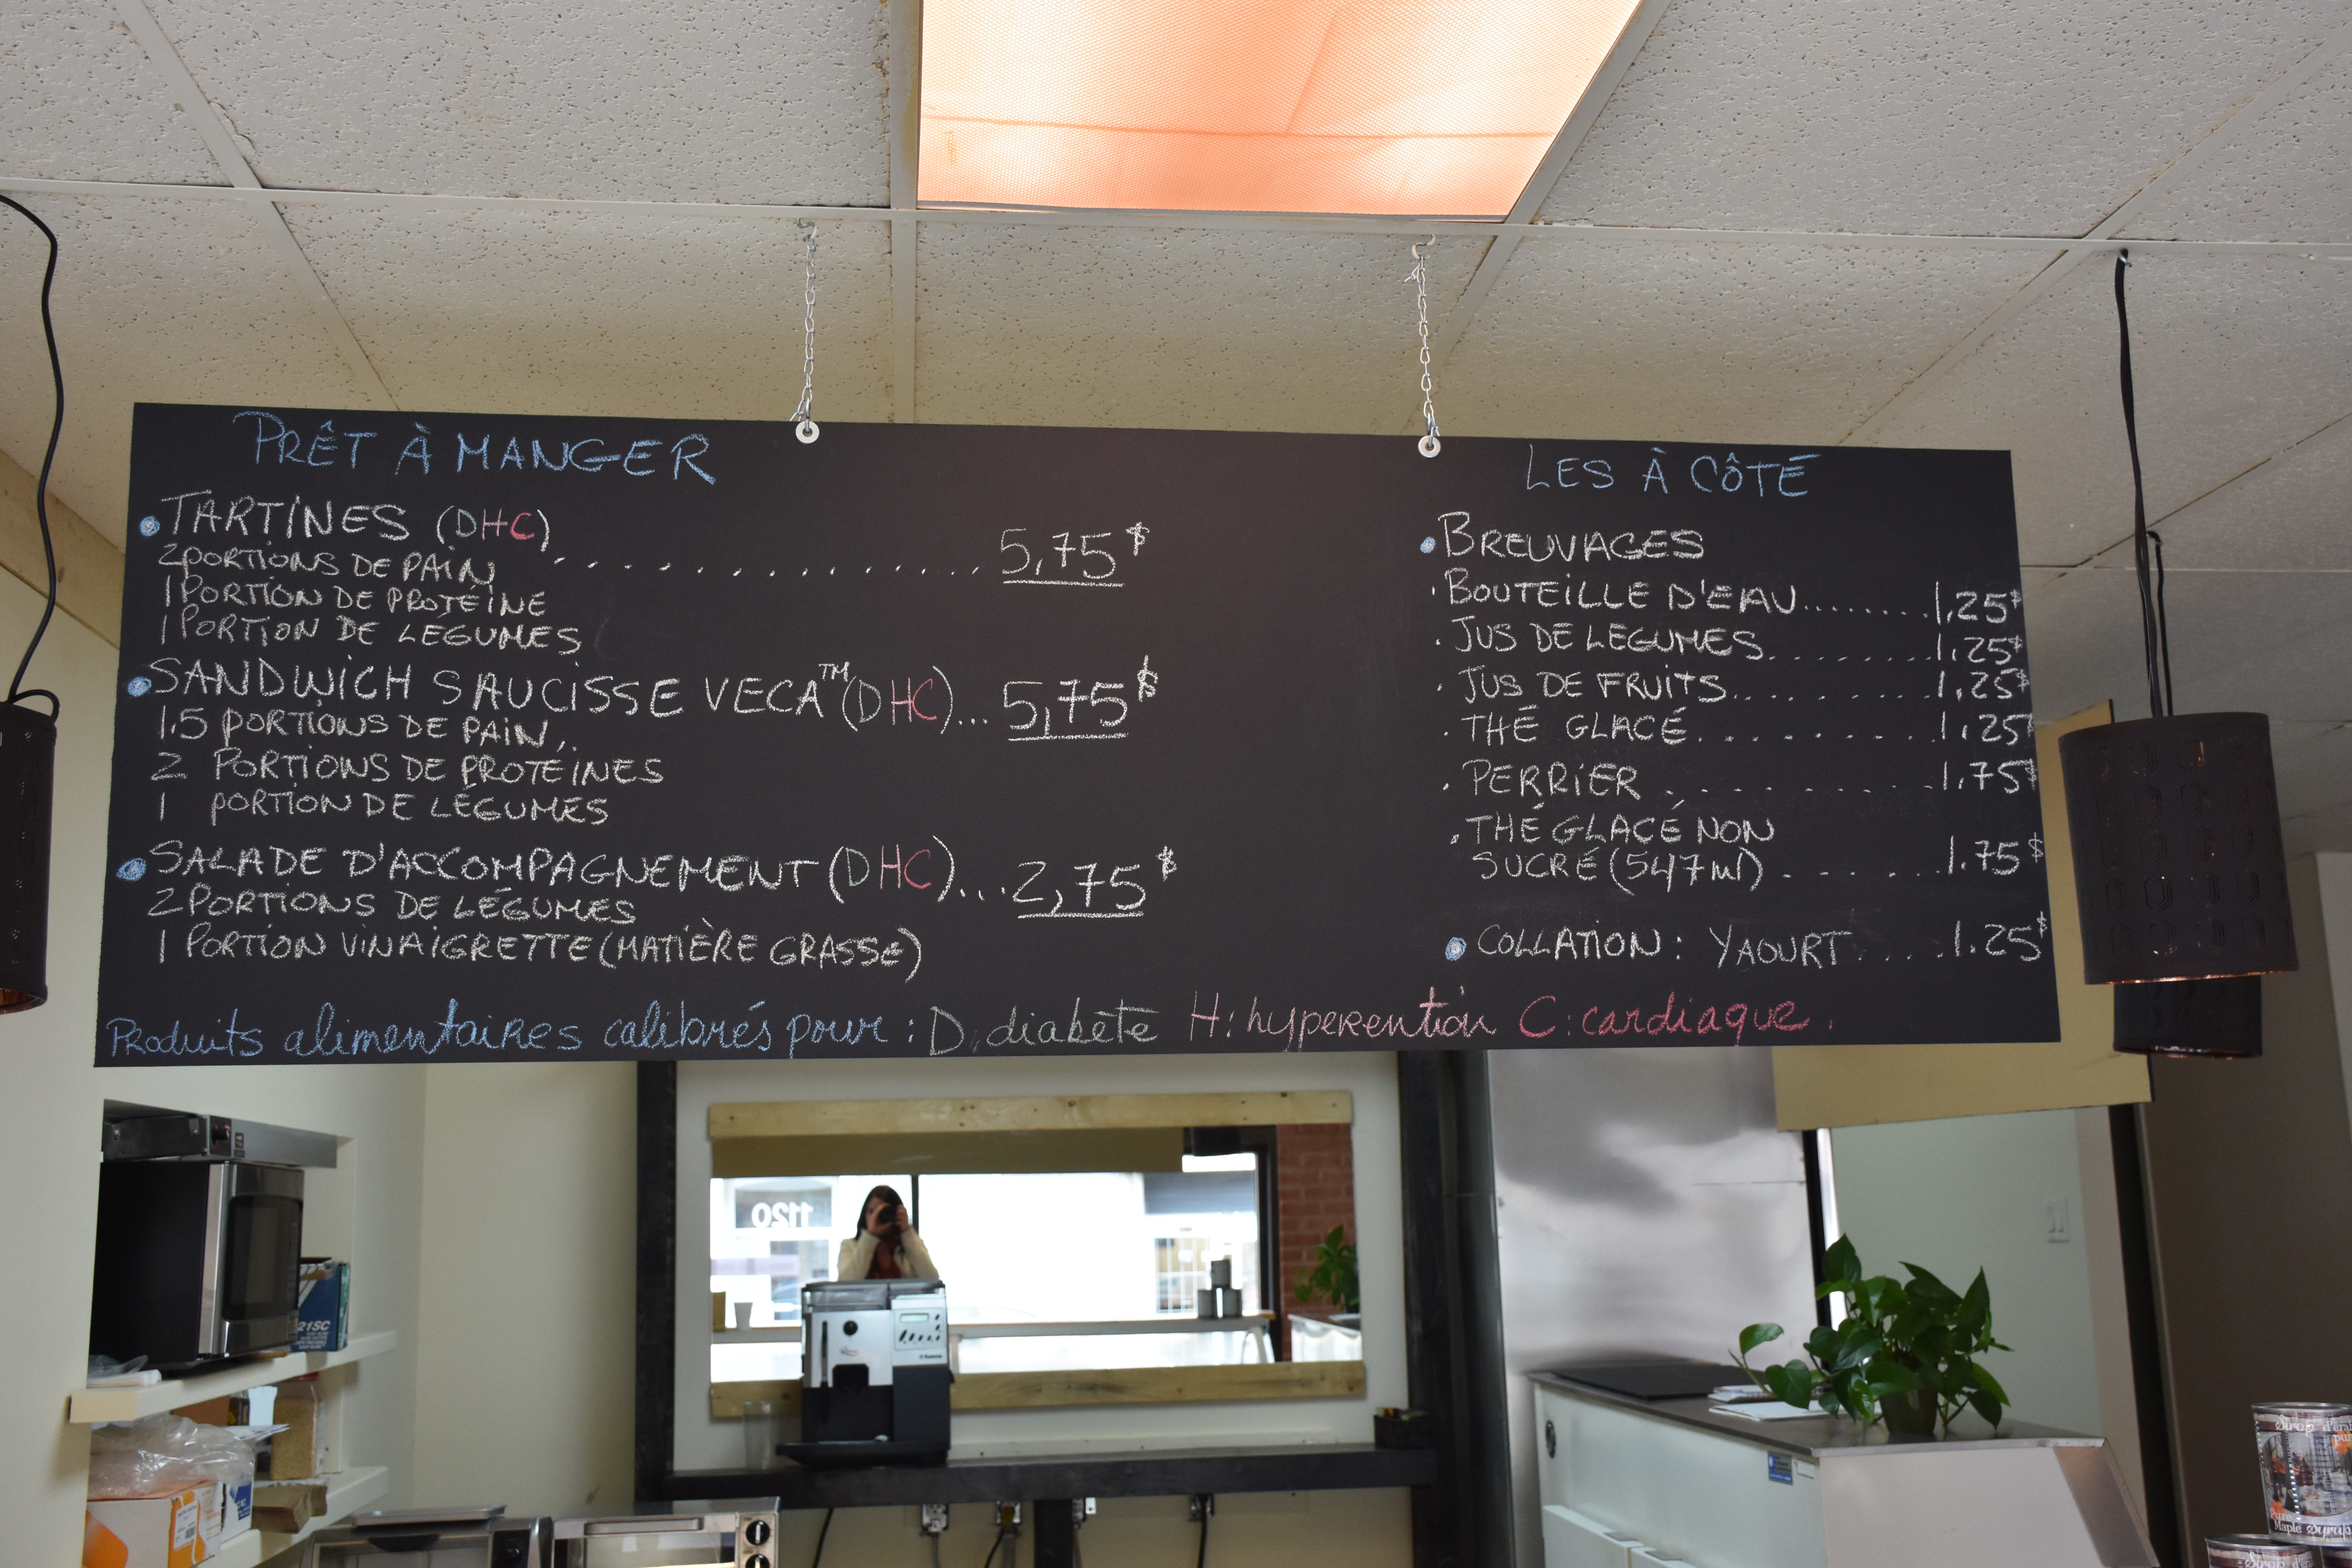 PRÊT À MANGER
TARTINES (DHC)
2 PORTIONS DE PAIN ............... 5,75$
1 PORTION DE PROTÉINE
1 PORTION DE LÉGUMES
SANDWICH SAUCISSE VECA™ (DHC)... 5,75$
1.5 PORTIONS DE PAIN,
2 PORTIONS DE PROTÉINES
1 PORTION DE LÉGUMES
SALADE D'ACCOMPAGNEMENT (DHC)... 2,75$
2 PORTIONS DE LÉGUMES
1 PORTION VINAIGRETTE (MATIÈRE GRASSE)
LES À CÔTÉ
BREUVAGES
· BOUTEILLE D'EAU........ 1,25$
· JUS DE LÉGUMES........ 1.25$
· JUS DE FRUITS......... 1,25$
· THÉ GLACÉ.......... 1,25$
· PERRIER ........... 1.75$
· THÉ GLACÉ NON
SUCRÉ (547ml) ...... 1.75$
COLLATION : YAOURT ..... 1.25$
Produits alimentaires calibrés pour : D: diabète H: hyperention C: cardiaque.
1120
21SC
Saeco
Sirop d'éra
pur
Pure
Maple Syrup
Sirop